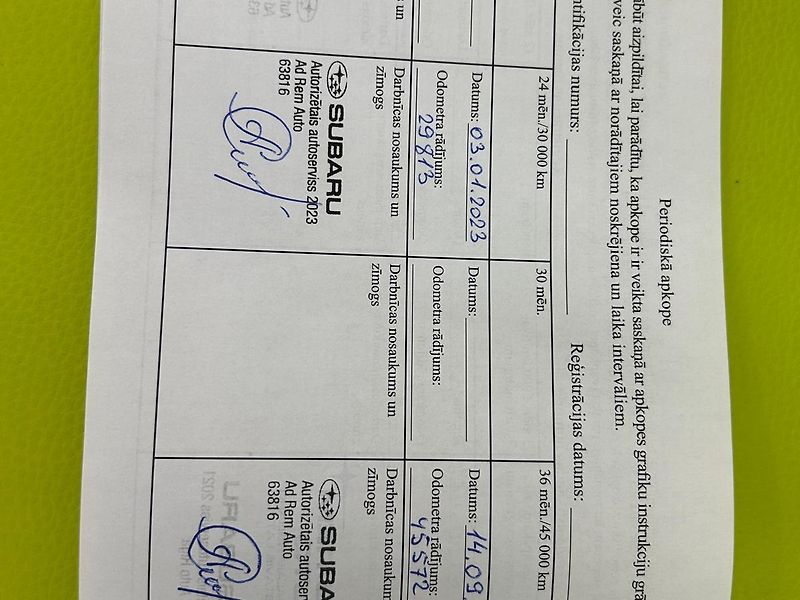 Periodiskā apkope
ābūt aizpildītai, lai parādītu, ka apkope ir ir veikta saskaņā ar apkopes grafiku instrukciju grā
veic saskaņā ar norādītajiem noskrējiena un laika intervāliem.
ntifikācijas numurs:
Reģistrācijas datums:
24 mēn./30 000 km
Datums: 03.01.2023
Odometra rādījums:
29813
Darbnīcas nosaukums un
zīmogs
SUBARU
Autorizētais autoserviss 2023
Ad Rem Auto
63816
30 mēn.
Datums:
Odometra rādījums:
Darbnīcas nosaukums un
zīmogs
36 mēn./45 000 km
Datums: 14.09.
Odometra rādījums:
45572
Darbnīcas nosaukums
zīmogs
SUBA
Autorizētais autoserviss
Ad Rem Auto
63816
s un